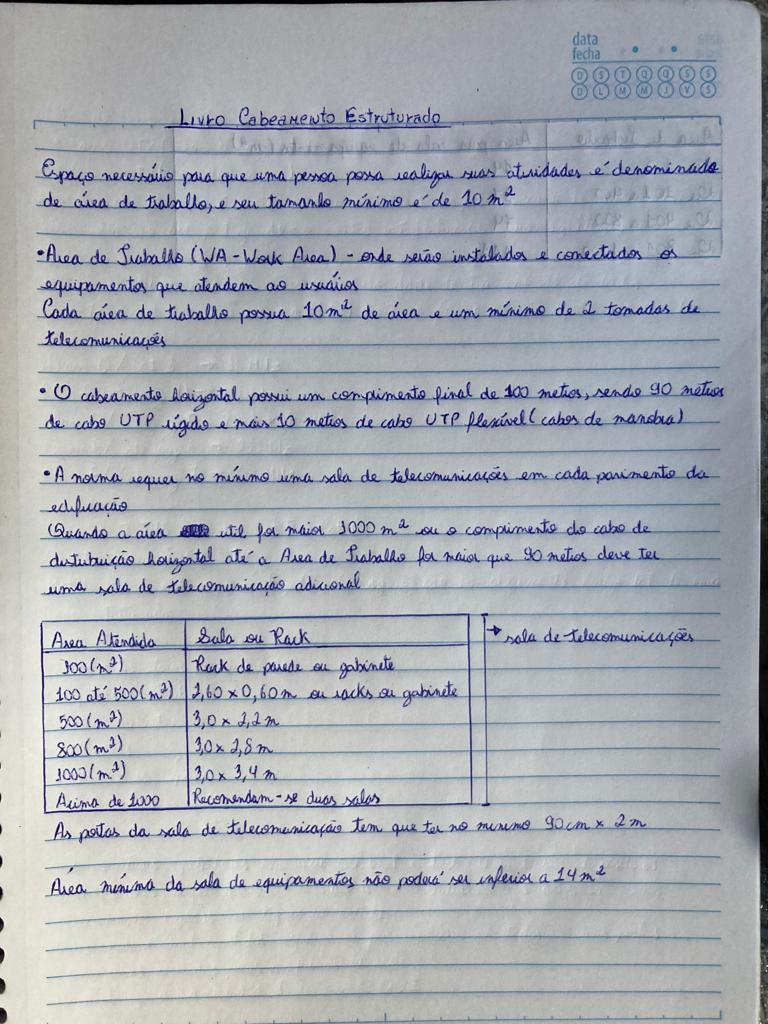 data
fecha
D S T Q Q S S
D L M M J V S
Livro Cabeamento Estruturado
Espaço necessário para que uma pessoa possa realizar suas atividades é denominado
de área de trabalho, e seu tamanho mínimo é de 10 m²
• Area de Trabalho (WA - Work Area) - onde serão instalados e conectados os
equipamentos que atendem ao usuários
Cada área de trabalho possua 10m² de área e um mínimo de 2 tomadas de
telecomunicações
• O cabeamento horizontal possui um comprimento final de 100 metros, sendo 90 metros
de cabo UTP rígido e mais 10 metros de cabo UTP flexível (cabos de manobra)
• A norma requer no mínimo uma sala de telecomunicações em cada pavimento da
edificação
Quando a área util for maior 1000 m² ou o comprimento do cabo de
distribuição horizontal até a Area de Trabalho for maior que 90 metros deve ter
uma sala de telecomunicação adicional
Area Atendida Sala ou Rack → sala de telecomunicações
100 (m²) Rack de parede ou gabinete
100 até 500 (m²) 2,60 x 0,60 m ou racks ou gabinete
500 (m²) 3,0 x 2,2 m
800 (m²) 3,0 x 2,8 m
1000 (m²) 3,0 x 3,4 m
Acima de 1000 Recomendam-se duas salas
As portas da sala de telecomunicação tem que ter no minimo 90 cm x 2 m
Área mínima da sala de equipamentos não poderá ser inferior a 14 m²